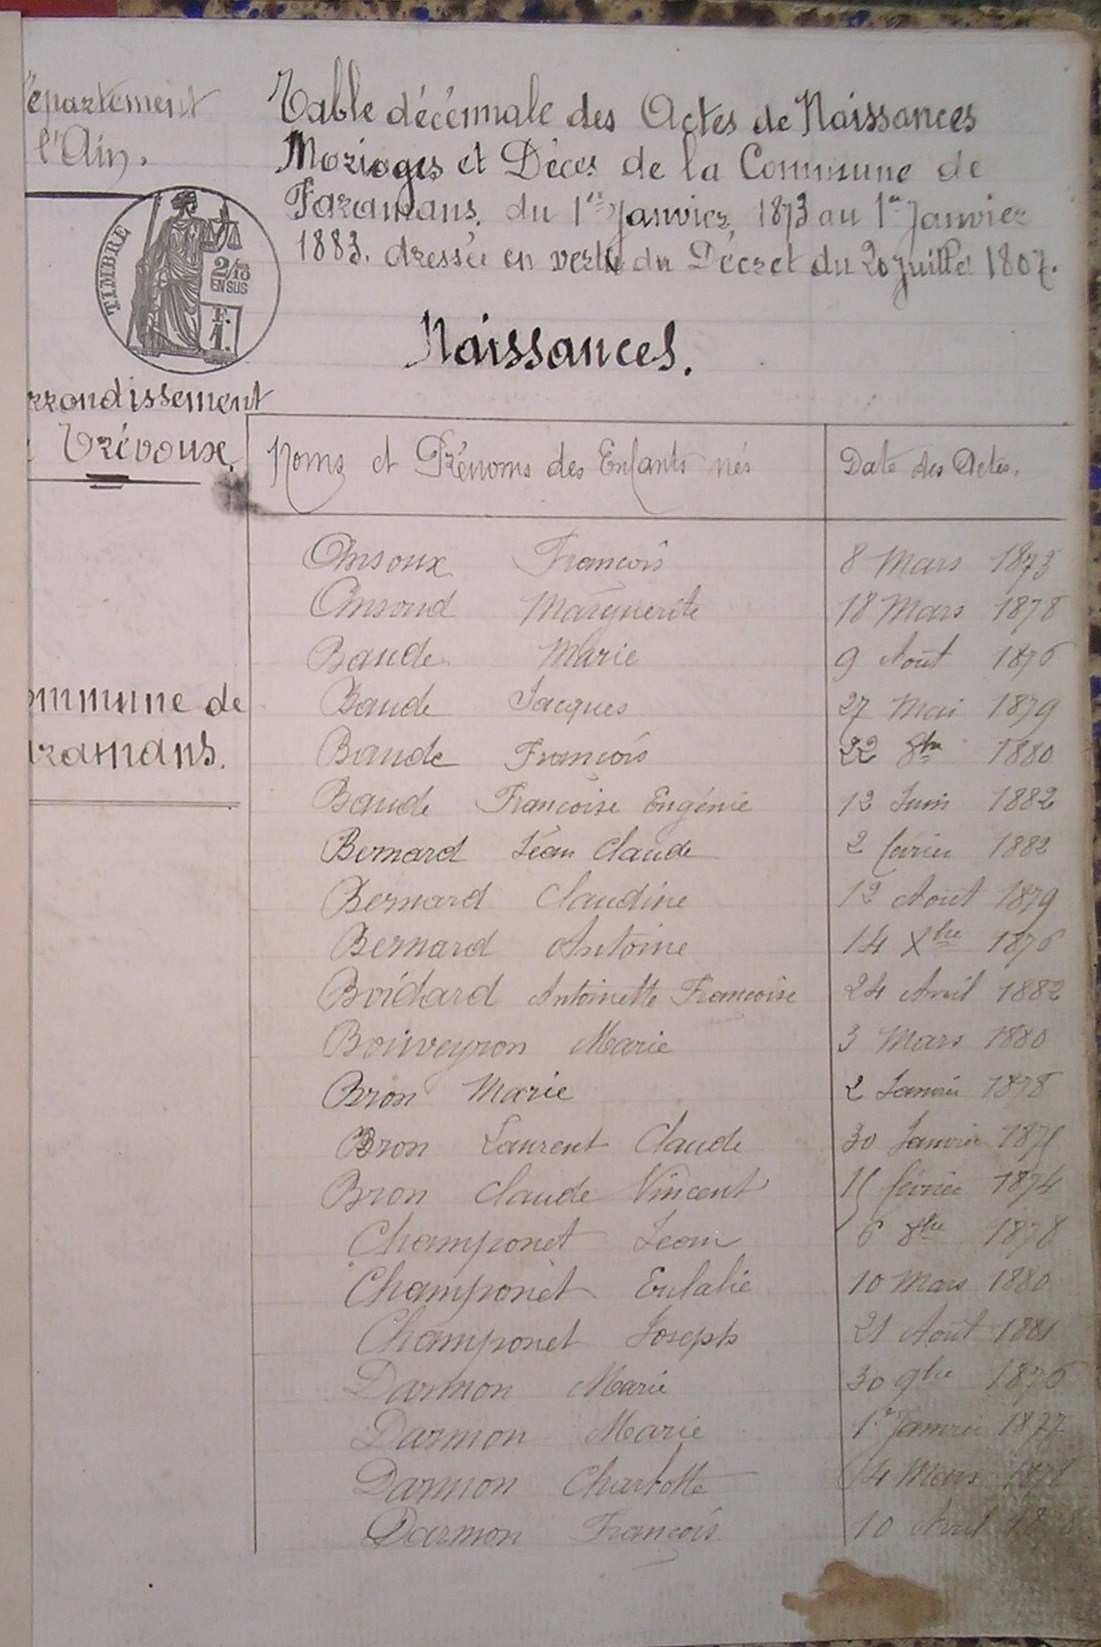 épartement
l'Ain.
Table décennale des Actes de Naissances
Mariages et Décès de la Commune de
Faramans. du 1er Janvier, 1873 au 1er Janvier
1883. dressée en vertu du Décret du 20 Juillet 1807.
TIMBRE
2/10
EN SUS
F.
1.
Naissances.
rrondissement
Trévoux.
Noms et Prénoms des Enfants nés Date des Actes.
Ansoux François 8 Mars 1873
Ansoud Marguerite 18 Mars 1878
Baude Marie 9 Août 1876
ommune de
aramans.
Baude Jacques 27 Mai 1879
Baude François 22 8bre 1880
Baude Françoise Eugénie 12 Juin 1882
Bernard Jéan Claude 2 février 1882
Bernard Claudine 12 Août 1879
Bernard Antoine 14 Xbre 1876
Boidard Antoinette Françoise 24 Avril 1882
Bouveyron Marie 3 Mars 1880
Bron Marie 2 Janvier 1878
Bron Laurent Claude 30 Janvier 1875
Bron Claude Vincent 15 février 1874
Champonet Jean 6 8bre 1878
Champonet Eulalie 10 Mars 1880
Champonet Joseph 21 Août 1881
Darmon Marie 30 9bre 1876
Darmon Marie 1er Janvier 1877
Darmon Charlotte 14 Mars 1878
Darmon François 10 Avril